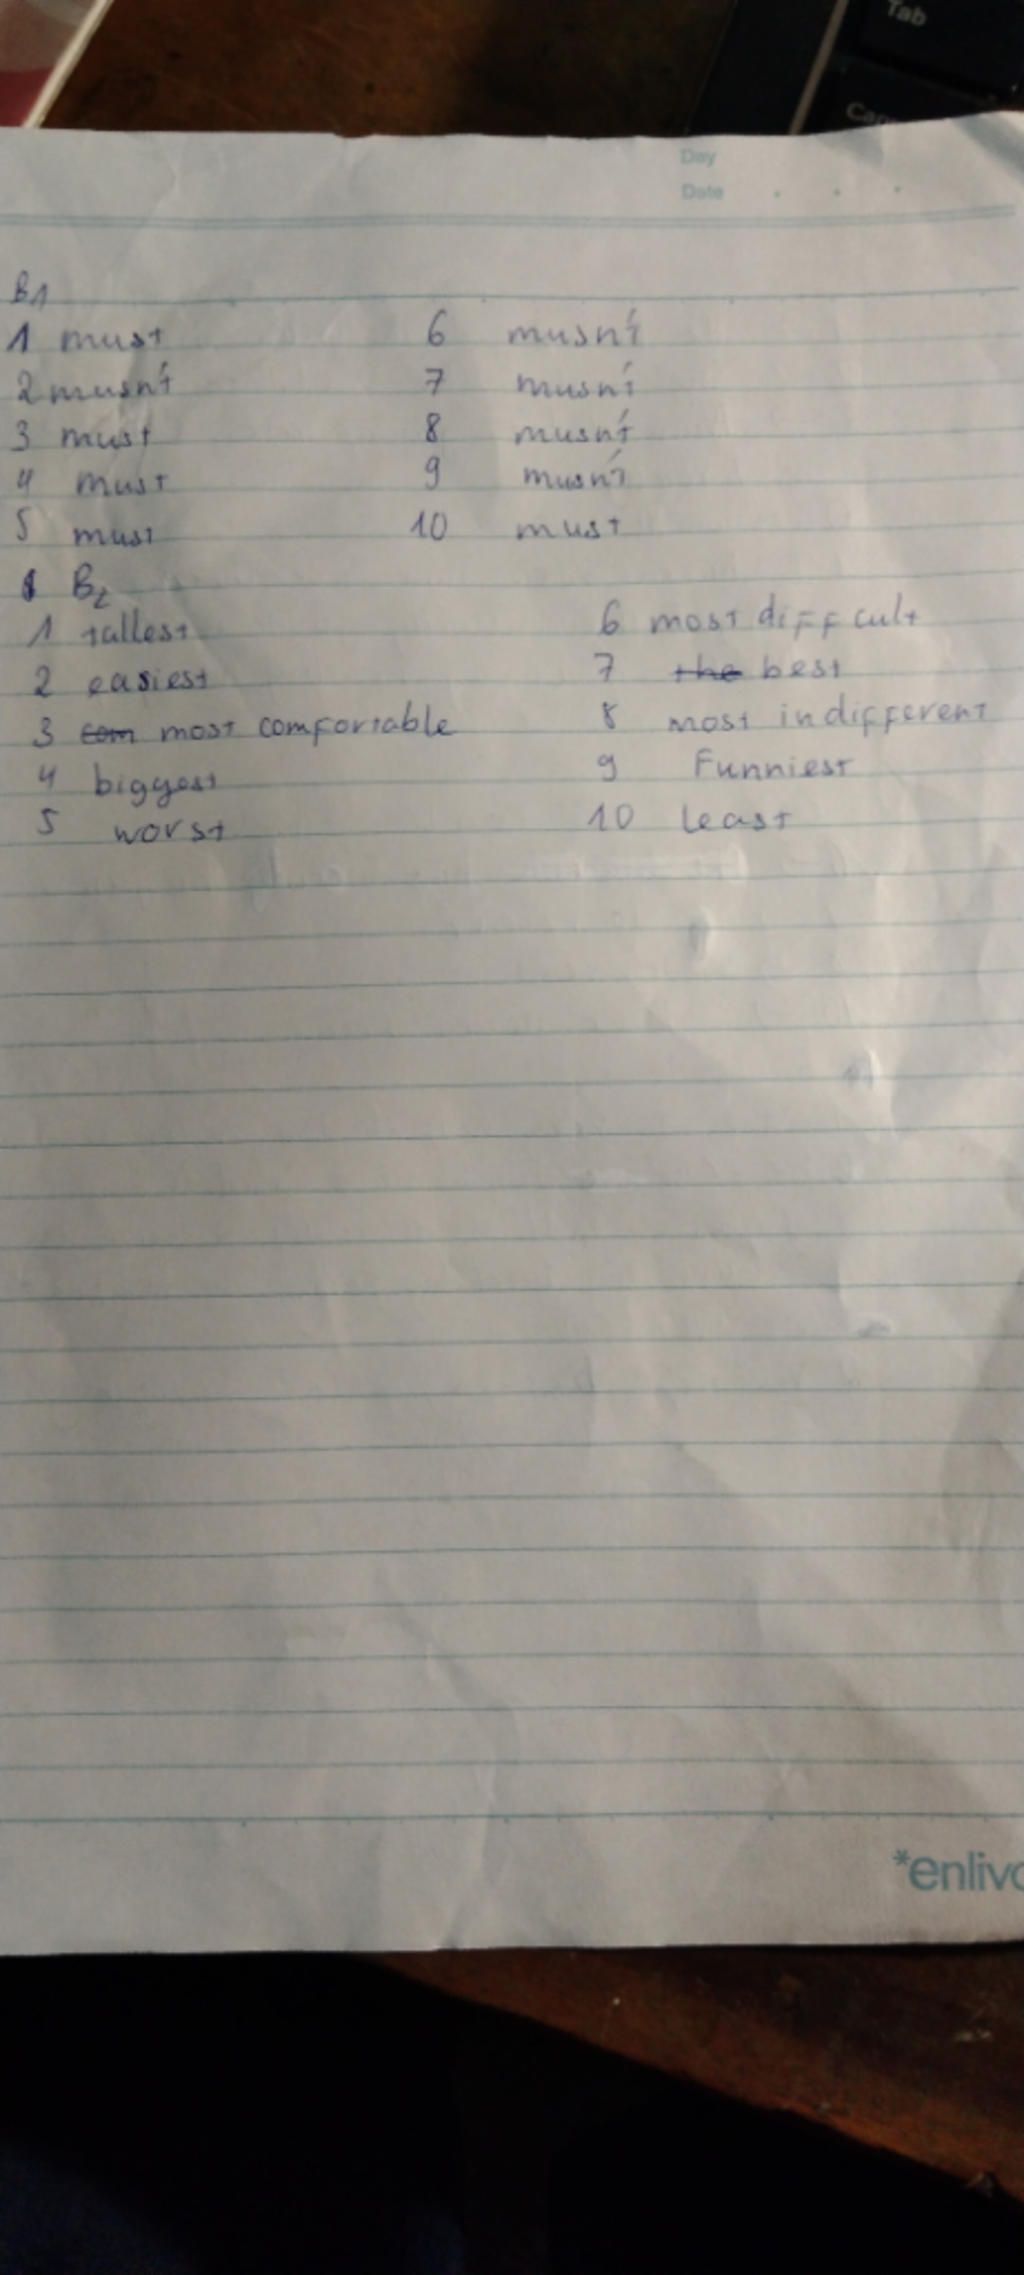 Tab
Day
Date
B1
1 must 6 musn't
2 musn't 7 musn't
3 must 8 musn't
4 must 9 musn't
5 must 10 must
B2
1 tallest 6 most difficult
2 easiest 7 the best
3 com most comfortable 8 most indifferent
4 biggest 9 Funniest
5 worst 10 least
*enliv